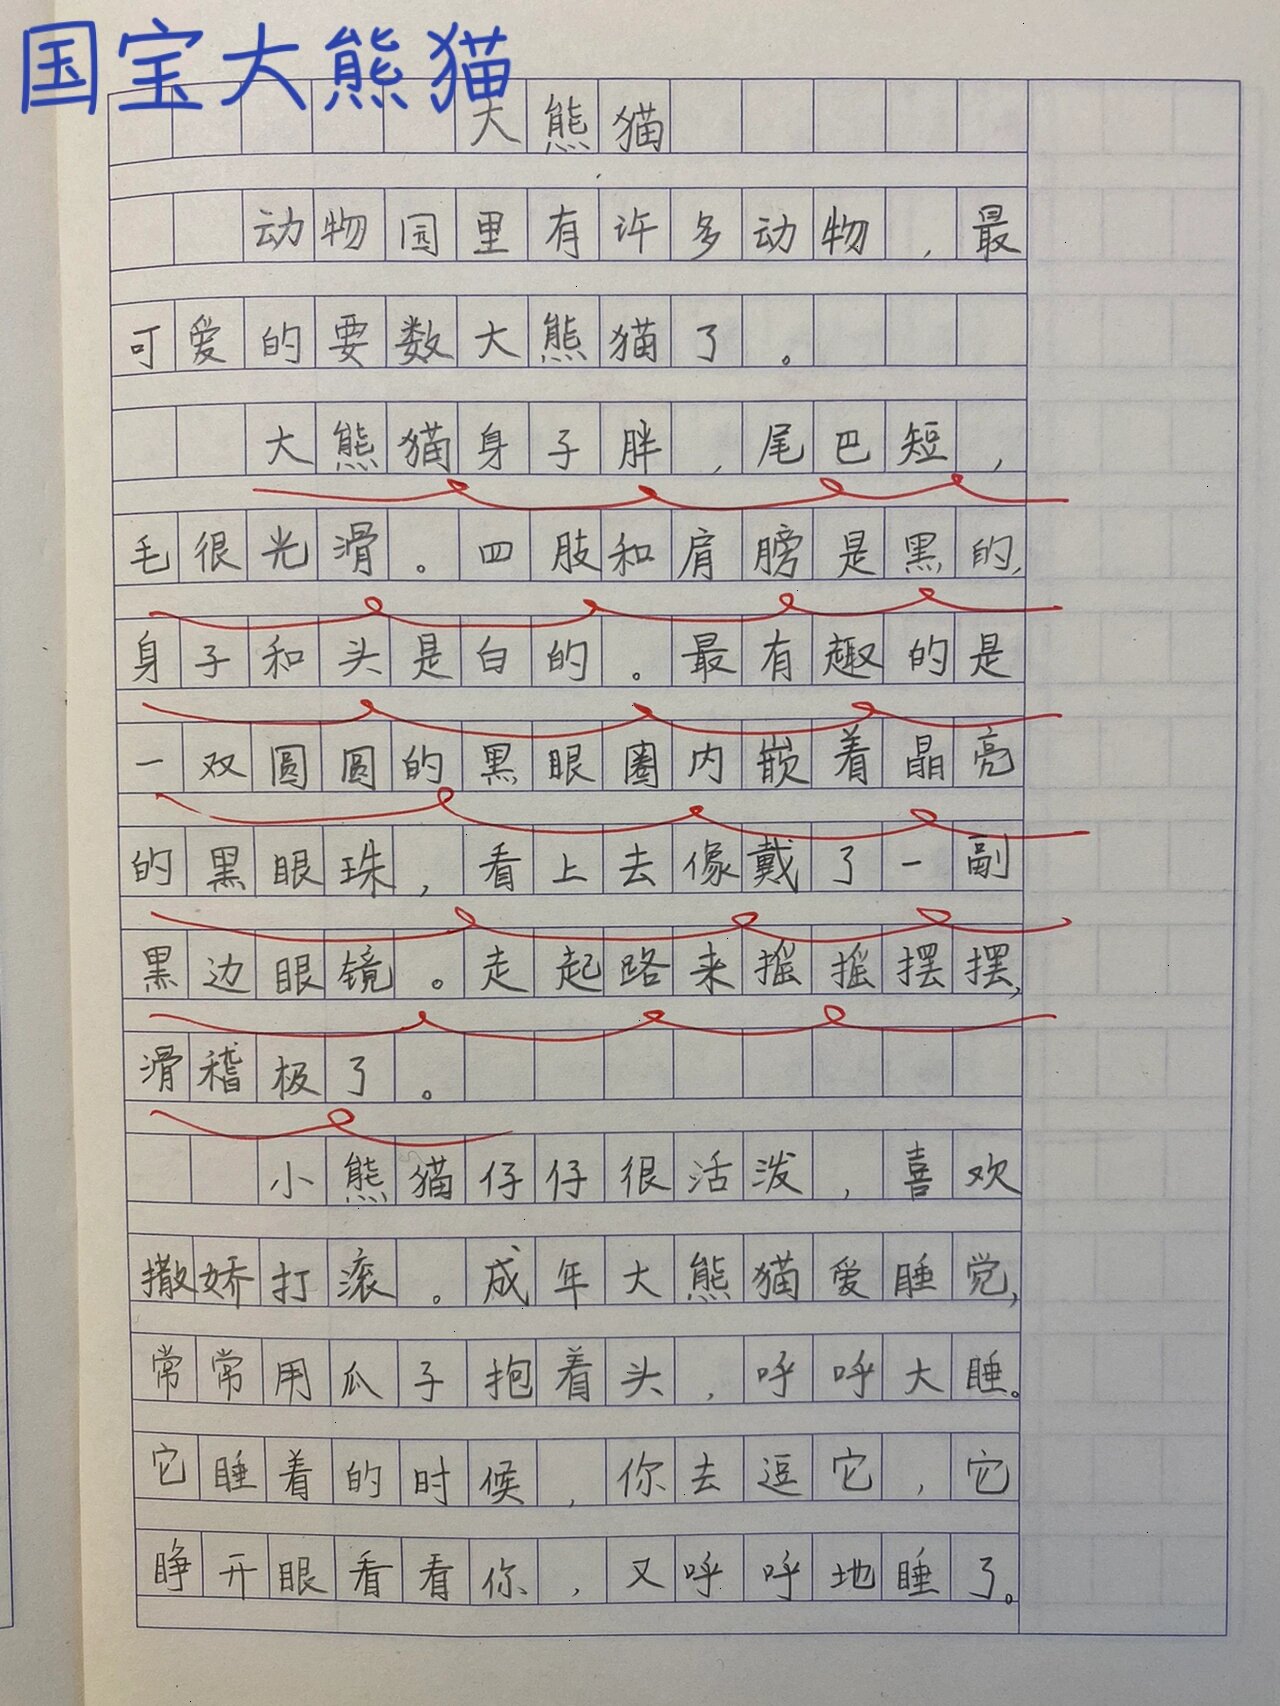 国宝大熊猫
大熊猫
动物园里有许多动物，最
可爱的要数大熊猫了。
大熊猫身子胖，尾巴短，
毛很光滑。四肢和肩膀是黑的，
身子和头是白的。最有趣的是
一双圆圆的黑眼圈内嵌着晶亮
的黑眼珠，看上去像戴了一副
黑边眼镜。走起路来摇摇摆摆，
滑稽极了。
小熊猫仔仔很活泼，喜欢
撒娇打滚。成年大熊猫爱睡觉，
常常用瓜子抱着头，呼呼大睡。
它睡着的时候，你去逗它，它
睁开眼看看你，又呼呼地睡了。